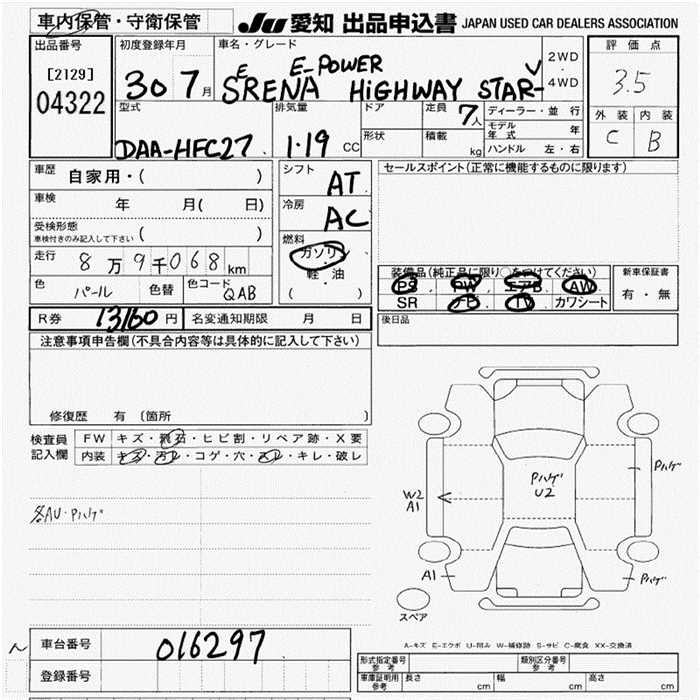 車内保管・守衛保管 JU 愛知 出品申込書 JAPAN USED CAR DEALERS ASSOCIATION
出品番号 初度登録年月 車名・グレード 評価点
[2129] 04322 30 7月 SERENA E-POWER HiGHWAY STAR-V 2WD 4WD 3.5
型式 排気量 ドア 定員 7人 ディーラー・並行 外装 内装
形状 積載 kg モデル年式 年 C B
DAA-HFC27 1.19 CC ハンドル 左・右
車歴 自家用・( ) シフト AT セールスポイント(正常に機能するものに限ります)
車検 年 月( 日) 冷房 AC
受検形態 車検付きのみ記入して下さい ( ) 燃料 ガソリン
走行 8万9千068km 軽・油
( ) 装備品(純正品に限り○をつけてください) 新車保証書
色 パール 色替 色コード QAB PS PW エアB AW 有・無
SR ナビ TV カワシート
R券 13160円 名変通知期限 月 日 後日品
注意事項申告欄(不具合内容等は具体的に記入して下さい)
修復歴 有 〔箇所 〕
検査員記入欄 FW キズ・飛石・ヒビ割・リペア跡・X要
内装 キズ・汚れ・コゲ・穴・スレ・キレ・破レ
各AU・Pハゲ
Pハゲ U2
Pハゲ
W2 A1
A1
Pハゲ
スペア
A-キズ E-エクボ U-凹み W-補修跡 S-サビ C-腐食 XX-交換済
車台番号 016297
登録番号
形式指定番号 参考 類別区分番号 参考
車庫証明用 参考 長さ cm 幅 cm 高さ cm